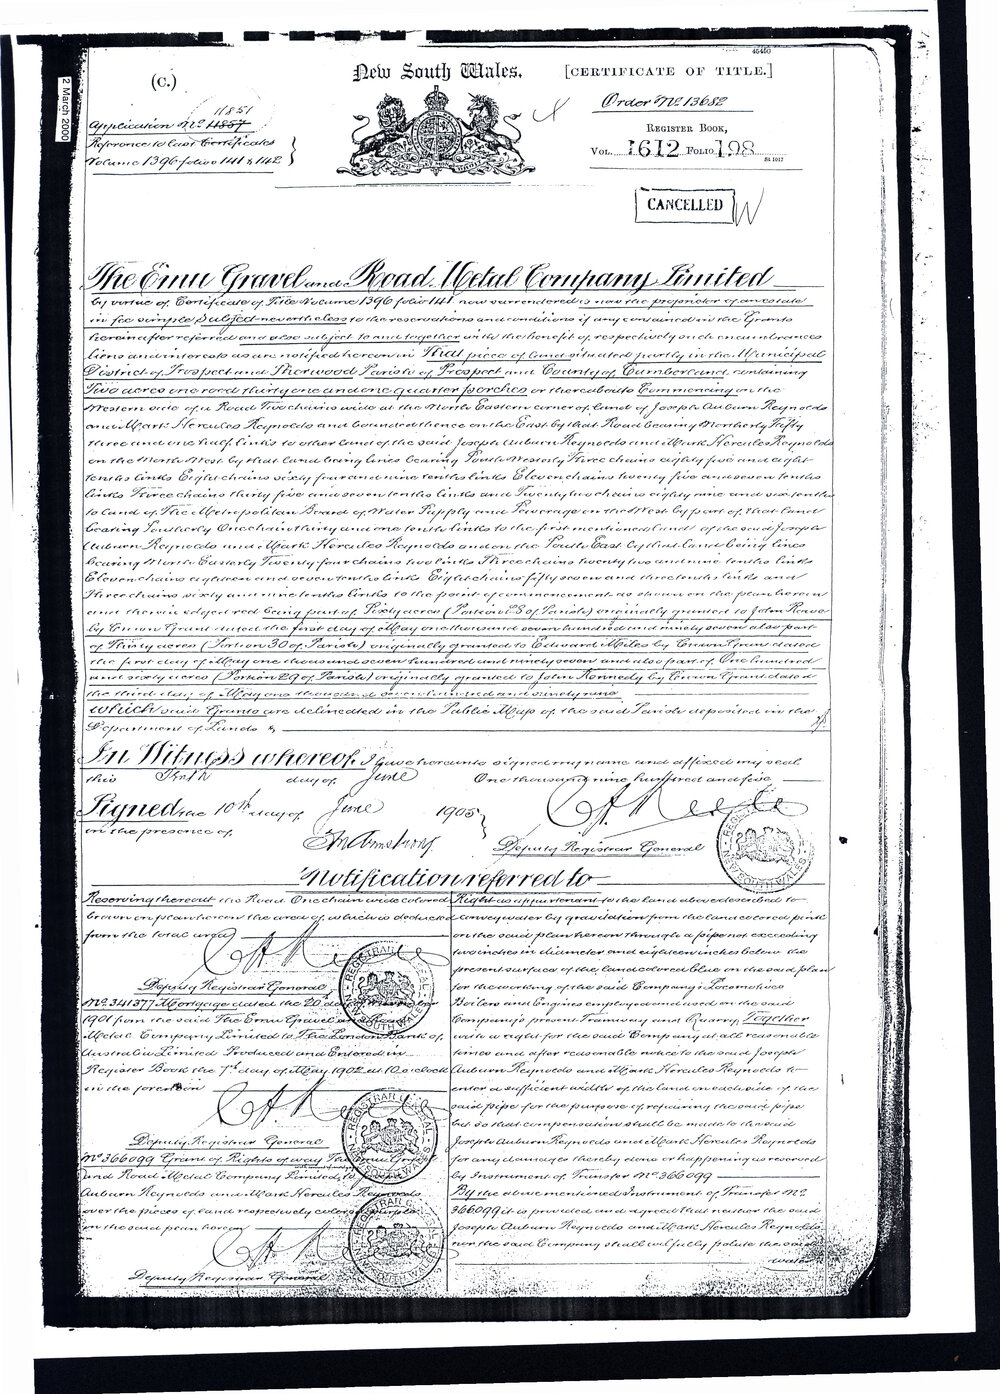 45450
2 March 2000
(C.)
New South Wales.
[CERTIFICATE OF TITLE.]
Order No 13682
11851
Application No 11857
Reference to Last Certificates
Volume 1396 folios 141 & 142
REGISTER BOOK,
VOL. 1612 FOLIO 198
St 1017
CANCELLED
The Emu Gravel and Road Metal Company Limited
by virtue of Certificate of Title Volume 1396 folio 141 now surrendered is now the proprietor of an estate
in fee simple Subject nevertheless to the reservations and conditions if any contained in the Grants
hereinafter referred and also subject to and together with the benefit of respectively such encumbrances
liens and interests as are notified hereon in That piece of land situated partly in the Municipal
District of Prospect and Sherwood Parish of Prospect and County of Cumberland containing
Two acres one rood thirty one and one quarter perches or thereabouts Commencing on the
Western side of a Road Two chains wide at the North Eastern corner of land of Joseph Auburn Reynolds
and Mark Hercules Reynolds and bounded thence on the East by that Road bearing Northerly Fifty
three and one half links to other land of the said Joseph Auburn Reynolds and Mark Hercules Reynolds
on the North West by that land being lines bearing South Westerly Three chains eighty five and eight
tenths links Eight chains sixty four and nine tenths links Eleven chains twenty five and seven tenths
links Three chains thirty five and seven tenths links and Twenty two chains eighty nine and six tenths
to land of The Metropolitan Board of Water Supply and Sewerage on the West by part of that land
bearing Southerly One chain thirty and one tenth links to the first mentioned land of the said Joseph
Auburn Reynolds and Mark Hercules Reynolds and on the South East by that land being lines
bearing North Easterly Twenty four chains two links Three chains twenty two and nine tenths links
Eleven chains eighteen and seven tenths links Eight chains fifty seven and three tenths links and
Three chains sixty and nine tenths links to the point of commencement as shown on the plan hereon
and therein edged red being part of Sixty acres (Portion 28 of Parish) originally granted to John Rowe
by Crown Grant dated the first day of May one thousand seven hundred and ninety seven also part
of Thirty acres (Portion 30 of Parish) originally granted to Edward Miles by Crown Grant dated
the first day of May one thousand seven hundred and ninety seven and also part of One hundred
and sixty acres (Portion 29 of Parish) originally granted to John Kennedy by Crown Grant dated
the third day of May one thousand seven hundred and ninety nine
which said Grants are delineated in the Public Map of the said Parish deposited in the
Department of Lands
In Witness whereof, I have hereunto signed my name and affixed my seal
this Tenth day of June One thousand nine hundred and five
Signed the 10th day of June 1905
in the presence of
Deputy Registrar General
REGISTRAR GENERAL NEW SOUTH WALES
Notification referred to
Reserving thereout the Road One chain wide colored
brown on plan hereon the area of which is deducted
from the total area
Deputy Registrar General
REGISTRAR GENERAL NEW SOUTH WALES
No 341377 Mortgage dated the 20th day
1901 from the said The Emu Gravel and Road
Metal Company Limited to The London Bank of
Australia Limited Produced and Entered in
Register Book the 7th day of May 1902 at 10 o'clock
in the forenoon
Deputy Registrar General
REGISTRAR GENERAL NEW SOUTH WALES
No 366099 Grant of Rights of way The Emu Gravel
and Road Metal Company Limited to
Auburn Reynolds and Mark Hercules Reynolds
over the pieces of land respectively colored purple
on the said plan hereon
Deputy Registrar General
REGISTRAR GENERAL NEW SOUTH WALES
Right as appurtenant to the land above described to
convey water by gravitation from the land colored pink
on the said plan hereon through a pipe not exceeding
two inches in diameter and eighteen inches below the
present surface of the land colored blue on the said plan
for the working of the said Company's Locomotives
Boilers and Engines employed and used on the said
Company's present Tramway and Quarry Together
with a right for the said Company at all reasonable
times and after reasonable notice to the said Joseph
Auburn Reynolds and Mark Hercules Reynolds to
enter a sufficient width of the land on each side of the
said pipe for the purpose of repairing the said pipe
but so that compensation shall be made to the said
Joseph Auburn Reynolds and Mark Hercules Reynolds
for any damages thereby done or happening as reserved
by Instrument of Transfer No 366099
By the above mentioned Instrument of Transfer No
366099 it is provided and agreed that neither the said
Joseph Auburn Reynolds and Mark Hercules Reynolds
nor the said Company shall wilfully polute the said
water